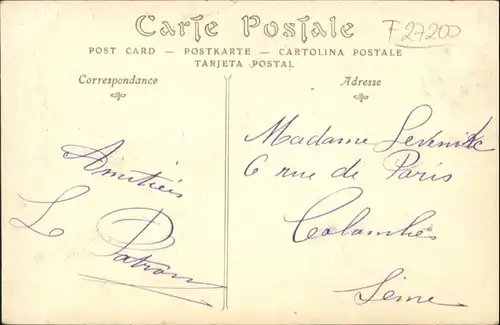 Carte Postale
F27200
POST CARD — POSTKARTE — CARTOLINA POSTALE
TARJETA POSTAL
Correspondance
Adresse
Amitiés
L
Madame
6 rue de Paris
Colombes
Seine